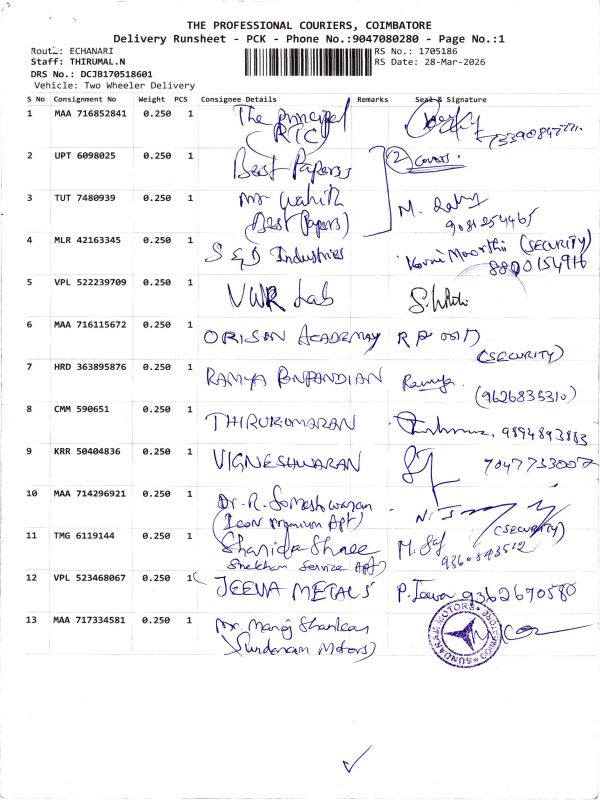 THE PROFESSIONAL COURIERS, COIMBATORE
Delivery Runsheet - PCK - Phone No.:9047080280 - Page No.:1
Route: ECHANARI
RS No.: 1705186
Staff: THIRUMAL.N
RS Date: 28-Mar-2026
DRS No.: DCJB170518601
Vehicle: Two Wheeler Delivery
S No Consignment No Weight PCS Consignee Details Remarks Seal & Signature
1 MAA 716852841 0.250 1 The principal
(RTC)
2 UPT 6098025 0.250 1 Best Papers (2) covers.
3 TUT 7480939 0.250 1 mr
(Best Papers) M.
9081254465
4 MLR 42163345 0.250 1 S & D Industries (SECURITY)
8800154916
5 VPL 522239709 0.250 1 VWR Lab
6 MAA 716115672 0.250 1 ORISON ACADEMAY
(SECURITY)
7 HRD 363895876 0.250 1 RAMYA PONPANDIAN Ramya
(9626835310)
8 CMM 590651 0.250 1 THIRUKUMARAN 9894893883
9 KRR 50404836 0.250 1 VIGNESHWARAN 7047733007
10 MAA 714296921 0.250 1 Dr. R. Someshwaran
(Icon premium Apt) (SECURITY)
11 TMG 6119144 0.250 1 Sharida Shree
Shekhan Service Apt)
12 VPL 523468067 0.250 1 JEEVA METALS P. Jeeva 9362690580
13 MAA 717334581 0.250 1 Mr. Manoj Shankar
(Sundaram Motors)
SUNDARAM MOTORS COIMBATORE